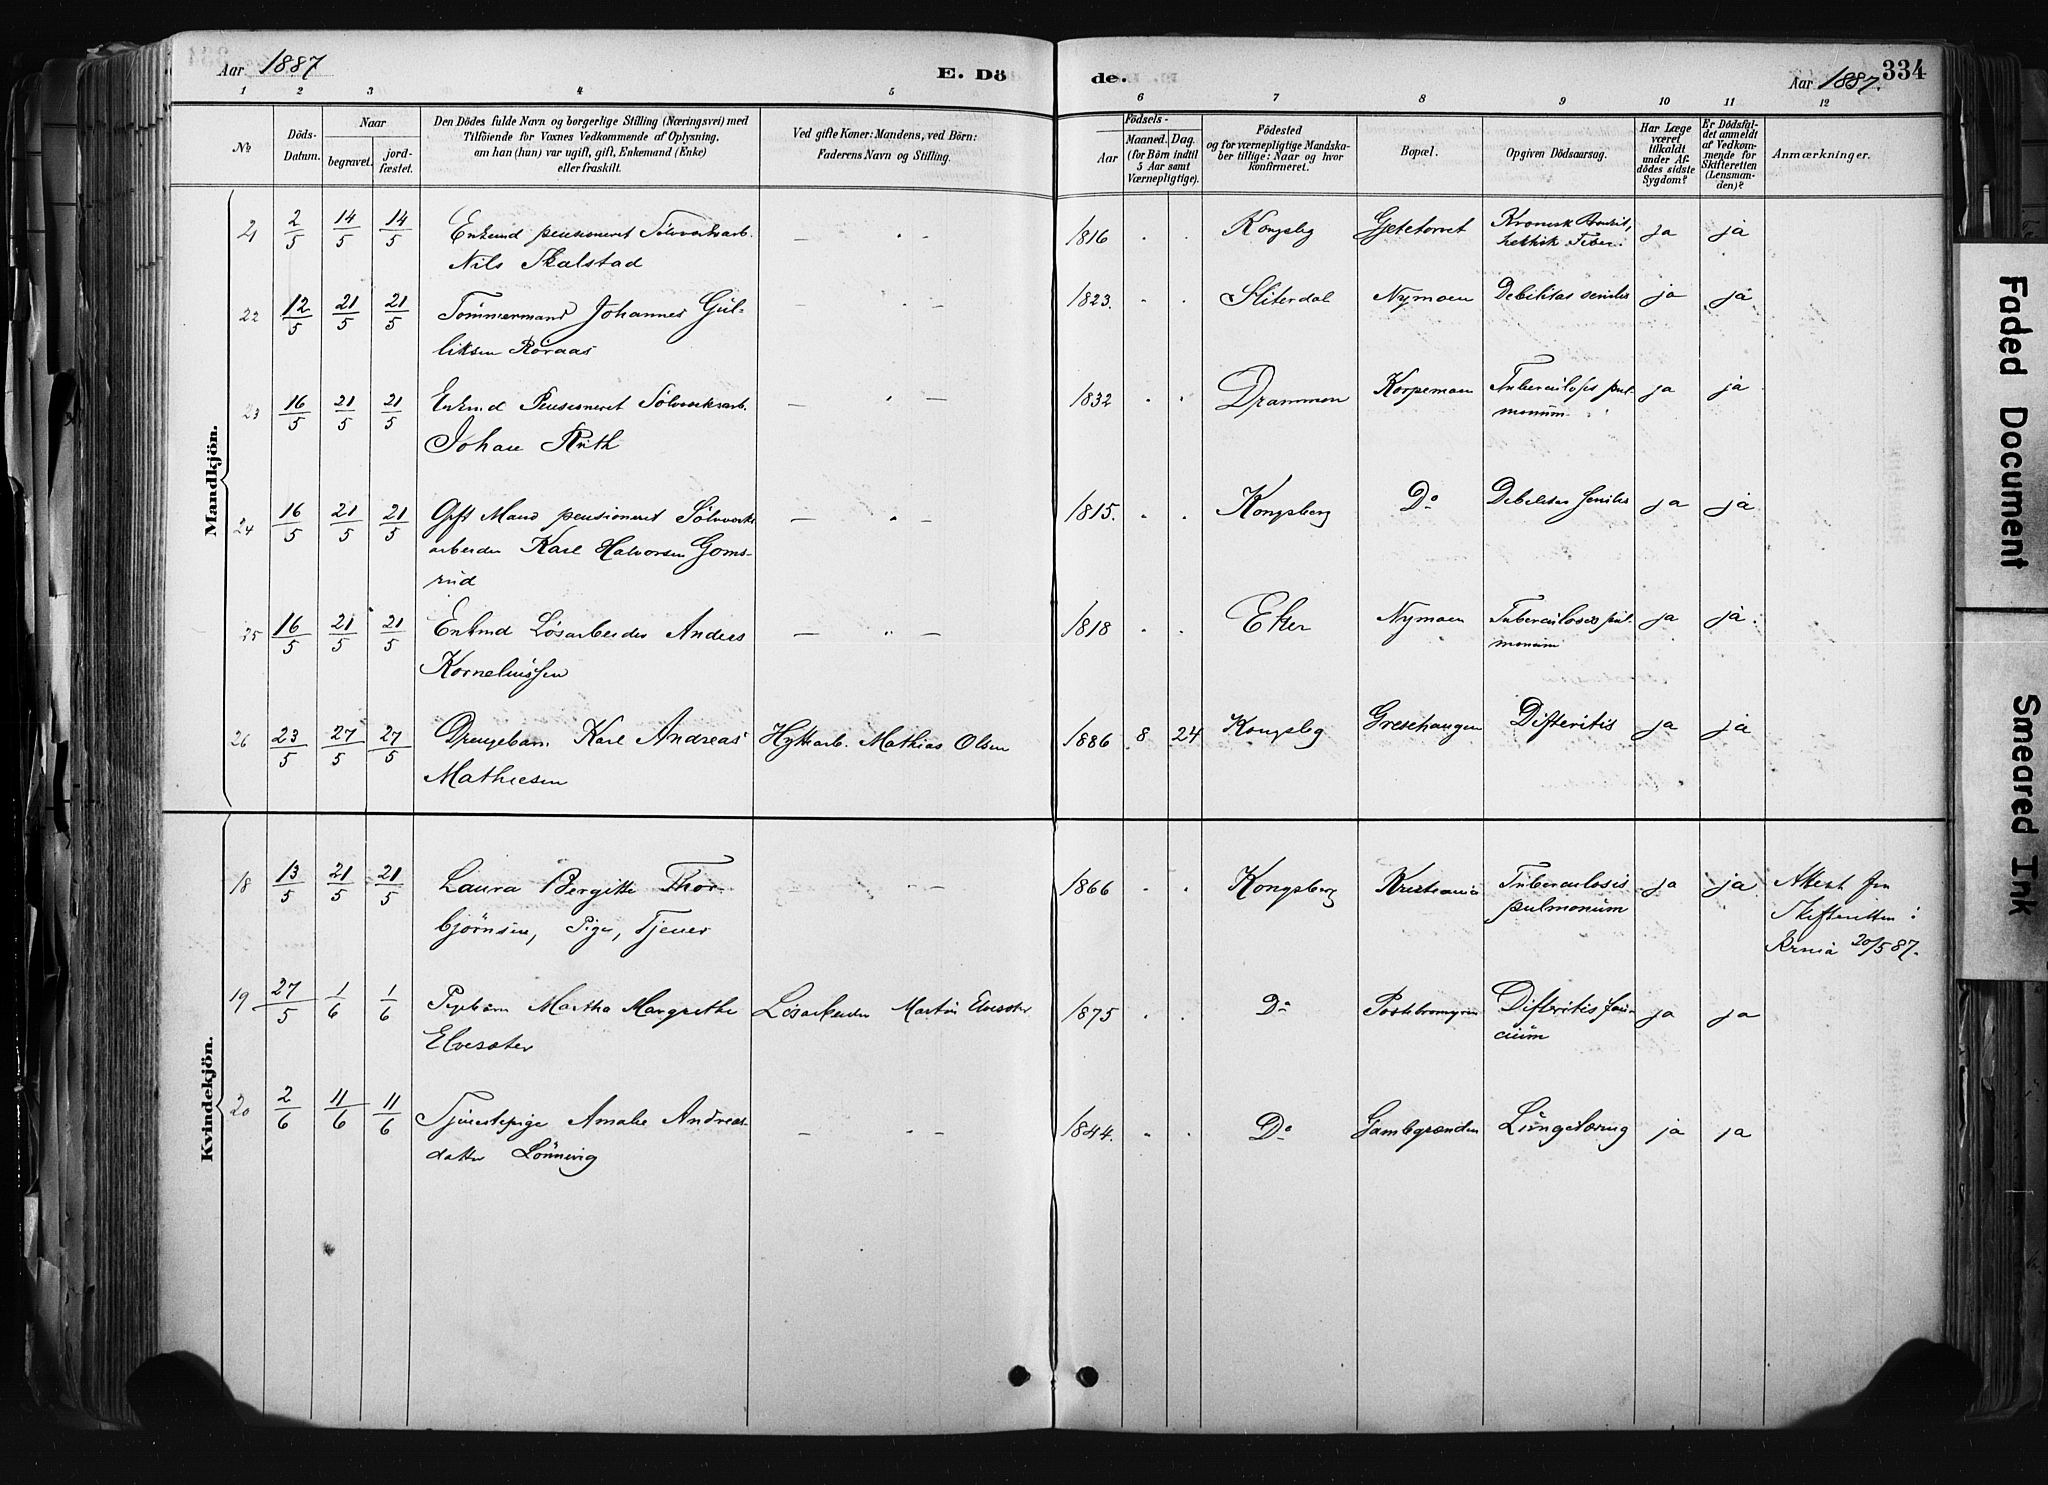 Aar 1887
E. Dö
de.
Aar 1887. 334
1 2 3 4 5 6 7 8 9 10 11 12
No
Döds-
Datum.
Naar
begravet.
jord-
fæstet.
Den Dödes fulde Navn og borgerlige Stilling (Næringsvei) med
Tilföiende for Voxnes Vedkommende af Oplysning,
om han (hun) var ugift, gift, Enkemand (Enke)
eller fraskilt.
Ved gifte Koner: Mandens, ved Börn:
Faderens Navn og Stilling.
Födsels-
Aar
Maaned. Dag.
(for Börn indtil
5 Aar samt
Værnepligtige).
Födested
og for værnepligtige Mandska-
ber tillige: Naar og hvor
konfirmeret.
Bopæl.
Opgiven Dödsaarsag.
Har Læge
været
tilkaldt
under Af-
dödes sidste
Sygdom?
Er Dödsfal-
det anmeldt
af Vedkom-
mende for
Skifteretten
(Lensman-
den)?
Anmærkninger.
Mandkjön.
21 2/5 14/5 14/5 Enkemd pensioneret Sölvverksarb. — " — 1816 " " Kongsbg Gjetetorvet Kronisk ja ja
Nils Skalstad hektisk Feber
22 12/5 21/5 21/5 Tömmermand Johannes Gul- " — 1823. " " Nymoen Debilitas senilis ja ja
liksen Röraas
23 16/5 21/5 21/5 Enkmd Pensioneret Sölvverksarb. — " — 1832 " " Drammen Korpemoen Tuberculosis pul- ja ja
Johan monum
24 16/5 21/5 21/5 Gift Mand pensioneret Sölvverks — " — 1815. " " Kongsberg Do Debilitas senilis ja ja
arbeider Karl Halvorsen Goms-
rud
25 16/5 21/5 21/5 Enkmd Lösarbeider Anders — " — 1818 " " Eker Nymoen Tuberculosis pul- ja ja.
Korneliussen monum
26 23/5 27/5 27/5 Drengebarn Karl Andreas Hyttearb. Mathias Olsen 1886 8 24 Kongsbg Difteritis ja ja
Mathiesen
Kvindekjön.
18 13/5 21/5 21/5 Laura Bergitte Thor- " — 1866 " " Kongsberg Kristiania Tuberculosis ja ja Attest fra
bjørnsen, Pige, Tjener pulmonum Skifteretten i
Krnia 20/5 87.
19 27/5 1/6 1/6 Pigebarn Martha Margrethe Lösarbeider Martin Elvesæter 1875 " " Do Difteritis fau- ja ja
Elvesæter cium
20 2/6 11/6 11/6 Tjenestepige Amalie Andreas- — " — 1844. " " Do Gamlegrænden Lungetæring ja ja
datter Lönnevig
Faded Document
Smeared Ink